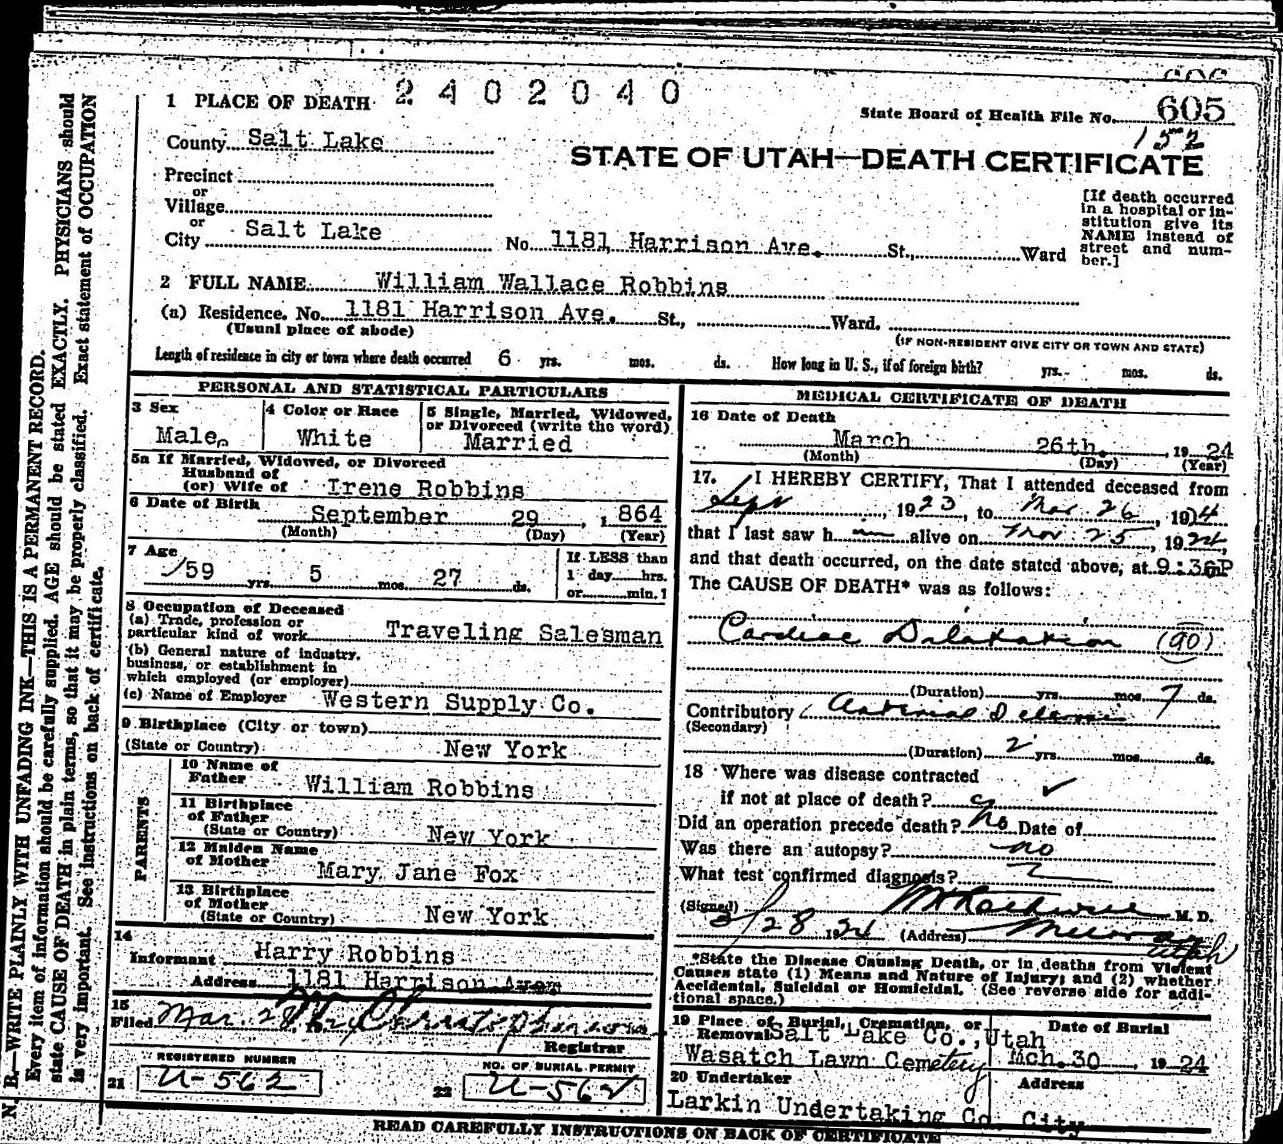 606
2 4 0 2 0 4 0
1 PLACE OF DEATH
State Board of Health File No. 605
152
County Salt Lake
STATE OF UTAH—DEATH CERTIFICATE
Precinct
or
Village
or
City Salt Lake No. 1181 Harrison Ave. St., Ward
[If death occurred
in a hospital or in-
stitution give its
NAME instead of
street and num-
ber.]
2 FULL NAME William Wallace Robbins
(a) Residence. No. 1181 Harrison Ave. St., Ward.
(Usual place of abode)
(IF NON-RESIDENT GIVE CITY OR TOWN AND STATE)
Length of residence in city or town where death occurred 6 yrs. mos. ds. How long in U. S., if of foreign birth? yrs. mos. ds.
PERSONAL AND STATISTICAL PARTICULARS
3 Sex
Male
4 Color or Race
White
5 Single, Married, Widowed,
or Divorced (write the word)
Married
5a If Married, Widowed, or Divorced
Husband of
(or) Wife of Irene Robbins
6 Date of Birth
September 29 , 1864
(Month) (Day) (Year)
7 Age
59 yrs. 5 mos. 27 ds.
If LESS than
1 day hrs.
or min.?
8 Occupation of Deceased
(a) Trade, profession or
particular kind of work Traveling Salesman
(b) General nature of industry,
business, or establishment in
which employed (or employer)
(c) Name of Employer Western Supply Co.
9 Birthplace (City or town)
(State or Country) New York
PARENTS
10 Name of
Father William Robbins
11 Birthplace
of Father
(State or Country) New York
12 Maiden Name
of Mother Mary Jane Fox
13 Birthplace
of Mother
(State or Country) New York
14
Informant Harry Robbins
Address 1181 Harrison Ave.
15
Filed Mar. 28
Registrar
REGISTERED NUMBER
21 U-562
NO. OF BURIAL PERMIT
22 U-562
MEDICAL CERTIFICATE OF DEATH
16 Date of Death
March 26th. , 1924
(Month) (Day) (Year)
17. I HEREBY CERTIFY, That I attended deceased from
Sept , 1923, to Mar. 26, 1924
that I last saw him alive on Mar. 25, 1924,
and that death occurred, on the date stated above, at 9:36P
The CAUSE OF DEATH* was as follows:
Cardiac Dilatation (90)
(Duration) yrs. mos. 7 ds.
Contributory
(Secondary)
(Duration) 2 yrs. mos. ds.
18 Where was disease contracted
if not at place of death?
Did an operation precede death? No Date of
Was there an autopsy? no
What test confirmed diagnosis?
(Signed) M. D.
3/28 1924 (Address) Murray
Utah
*State the Disease Causing Death, or in deaths from Violent
Causes state (1) Means and Nature of Injury; and (2) whether
Accidental, Suicidal or Homicidal. (See reverse side for addi-
tional space.)
19 Place of Burial, Cremation, or
Removal Salt Lake Co., Utah
Wasatch Lawn Cemetery
Date of Burial
Mch. 30 1924
20 Undertaker
Larkin Undertaking Co.
Address
City
READ CAREFULLY INSTRUCTIONS ON BACK OF CERTIFICATE
N. B.—WRITE PLAINLY WITH UNFADING INK—THIS IS A PERMANENT RECORD.
Every item of information should be carefully supplied. AGE should be stated EXACTLY. PHYSICIANS should
state CAUSE OF DEATH in plain terms, so that it may be properly classified. Exact statement of OCCUPATION
is very important. See instructions on back of certificate.